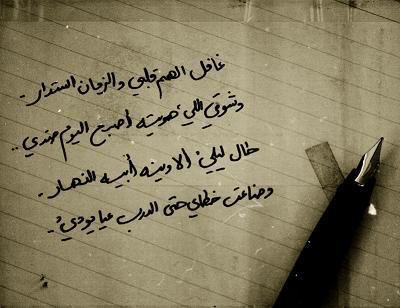 غافل الهم قلبي والزمان استدار ..
وشوقي اللي هويته أصبح اليوم ضدي ..
طال ليلي ألا وينه أبيه النهار ..
وضاعت خطاي حتى الدرب عيا يودي ..